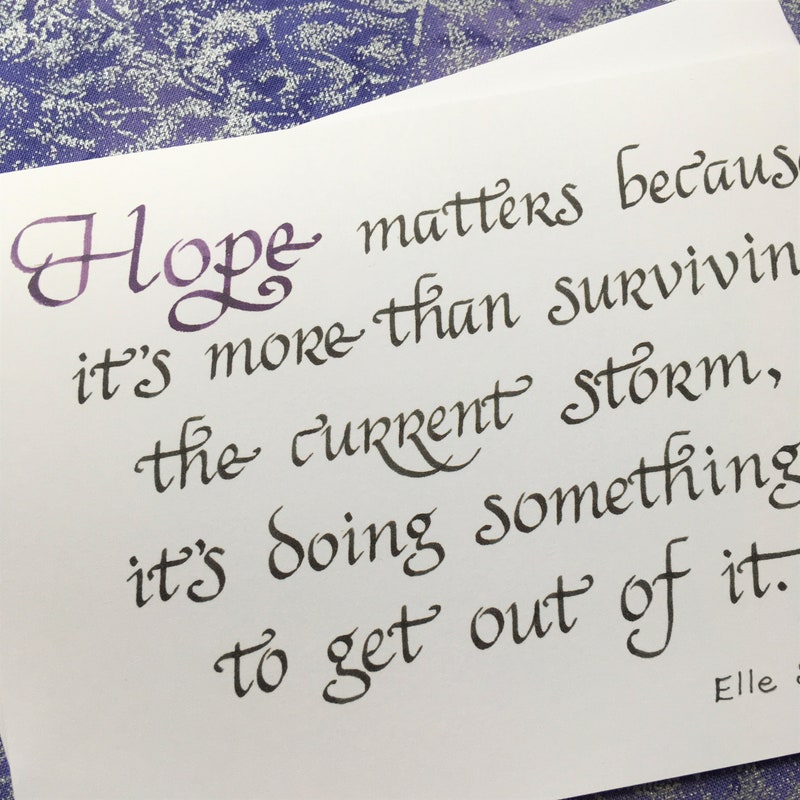 Hope matters because
it's more than survivin
the current storm,
it's doing something
to get out of it.
Elle